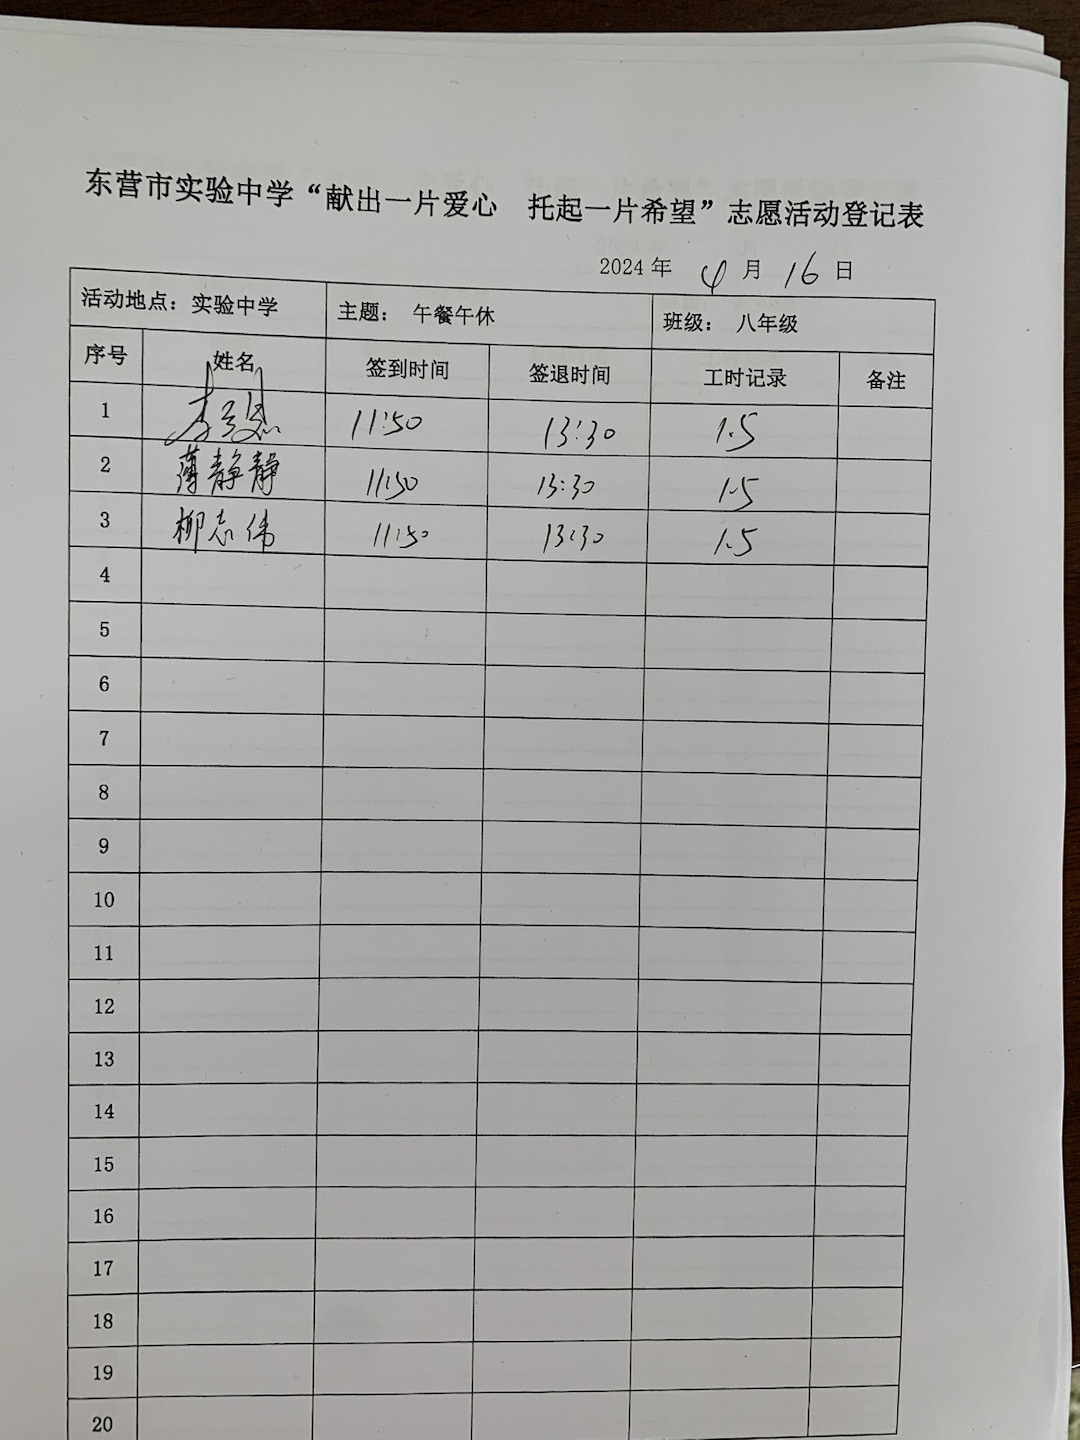 东营市实验中学“献出一片爱心 托起一片希望”志愿活动登记表
2024 年 4 月 16 日
活动地点：实验中学 主题： 午餐午休 班级： 八年级
序号 姓名 签到时间 签退时间 工时记录 备注
1 李 11:50 13:30 1.5
2 薄静静 11:50 13:30 1.5
3 柳志伟 11:50 13:30 1.5
4
5
6
7
8
9
10
11
12
13
14
15
16
17
18
19
20